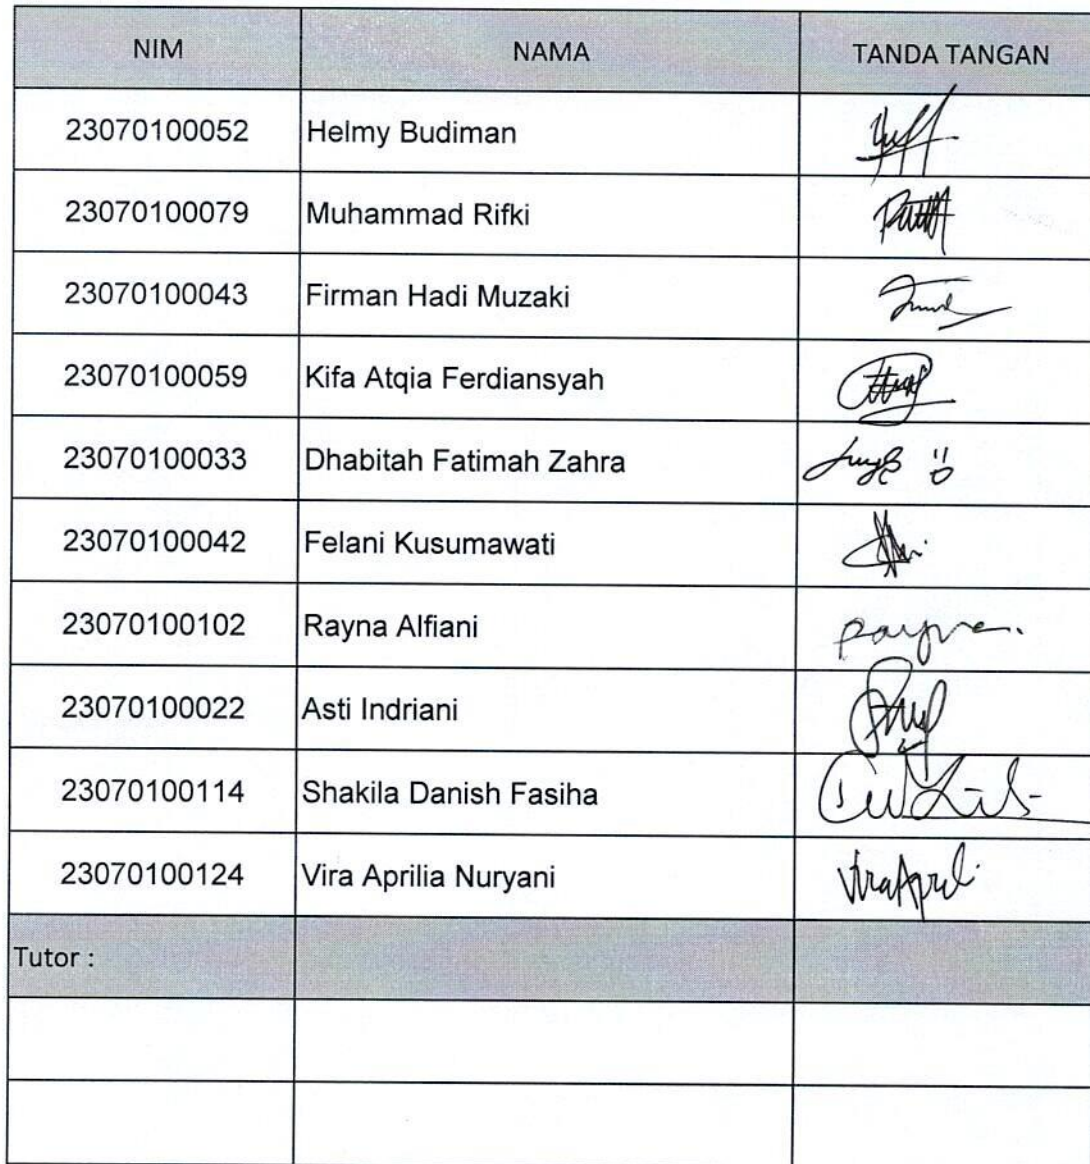 NIM NAMA TANDA TANGAN
23070100052 Helmy Budiman
23070100079 Muhammad Rifki
23070100043 Firman Hadi Muzaki
23070100059 Kifa Atqia Ferdiansyah
23070100033 Dhabitah Fatimah Zahra
23070100042 Felani Kusumawati
23070100102 Rayna Alfiani Rayna.
23070100022 Asti Indriani
23070100114 Shakila Danish Fasiha
23070100124 Vira Aprilia Nuryani ViraApril
Tutor :